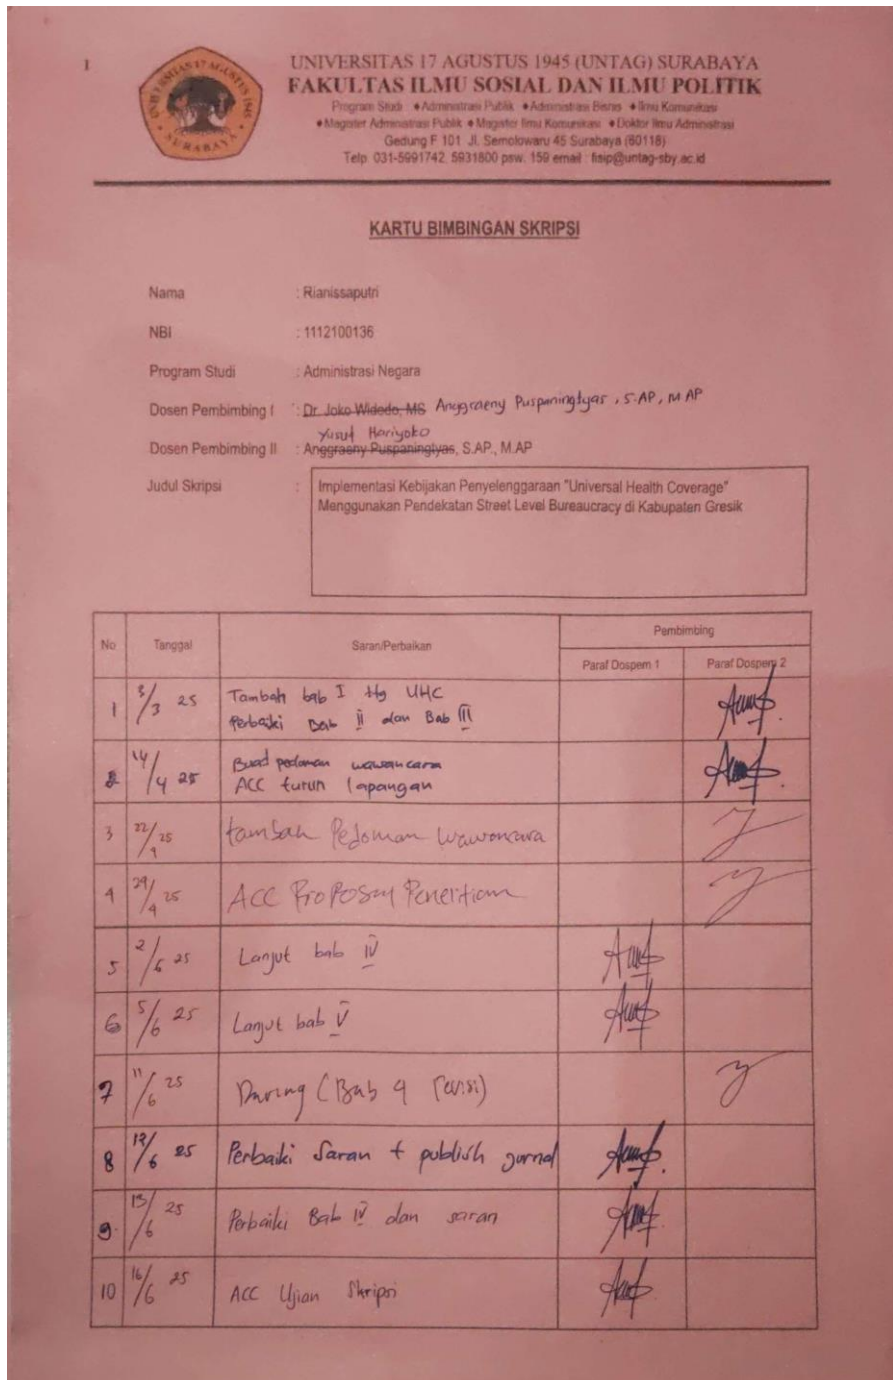 1
UNIVERSITAS 17 AGUSTUS 1945
SURABAYA
UNIVERSITAS 17 AGUSTUS 1945 (UNTAG) SURABAYA
FAKULTAS ILMU SOSIAL DAN ILMU POLITIK
Program Studi ♦Administrasi Publik ♦Administrasi Bisnis ♦Ilmu Komunikasi
♦Magister Administrasi Publik ♦Magister Ilmu Komunikasi ♦Doktor Ilmu Administrasi
Gedung F 101 Jl. Semolowaru 45 Surabaya (60118)
Telp. 031-5991742, 5931800 psw. 159 email : fisip@untag-sby.ac.id
KARTU BIMBINGAN SKRIPSI
Nama : Rianissaputri
NBI : 1112100136
Program Studi : Administrasi Negara
Dosen Pembimbing I : Dr. Joko Widodo, MS Anggraeny Puspaningtyas, S.AP, M.AP
Yusuf Hariyoko
Dosen Pembimbing II : Anggraeny Puspaningtyas, S.AP., M.AP
Judul Skripsi : Implementasi Kebijakan Penyelenggaraan "Universal Health Coverage"
Menggunakan Pendekatan Street Level Bureaucracy di Kabupaten Gresik
No Tanggal Saran/Perbaikan Pembimbing
Paraf Dospem 1 Paraf Dospem 2
1 3/3 25 Tambah bab I ttg UHC
Perbaiki Bab II dan Bab III
2 14/4 25 Buat pedoman wawancara
ACC turun lapangan
3 22/4 25 tambah Pedoman wawancara
4 29/4 25 ACC Proposal Penelitian
5 2/6 25 Lanjut bab IV
6 5/6 25 Lanjut bab V
7 11/6 25 Daring (Bab 4 revisi)
8 12/6 25 Perbaiki Saran + publish jurnal
9. 13/6 25 Perbaiki Bab IV dan saran
10 16/6 25 ACC Ujian Skripsi